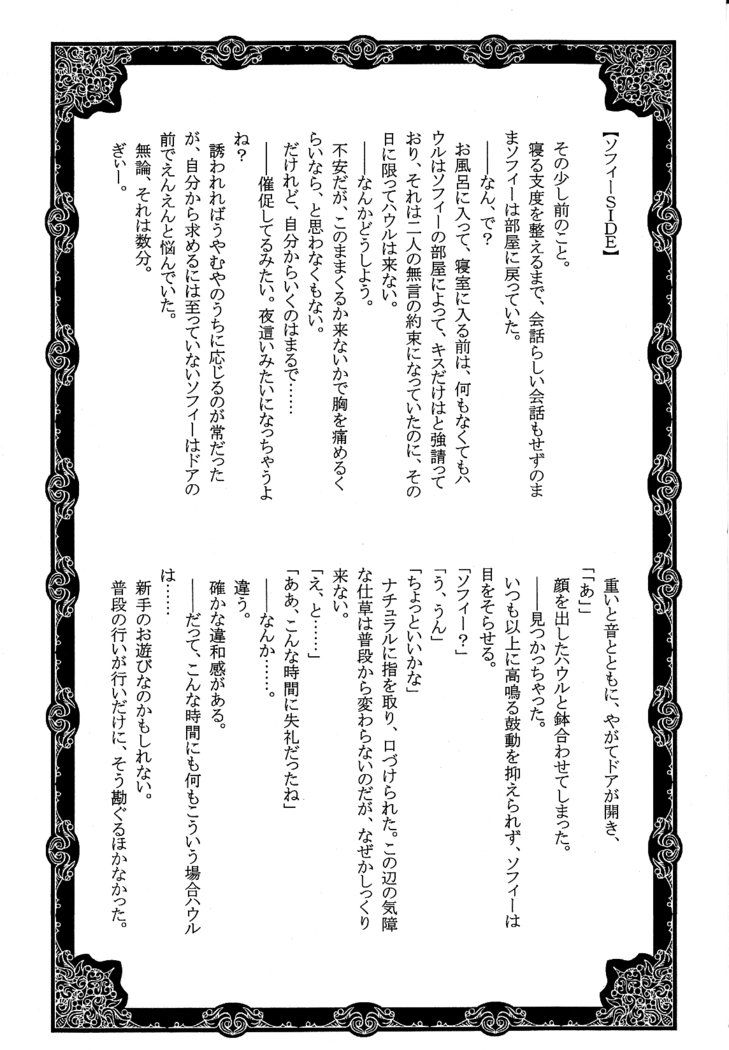 【ソフィーＳＩＤＥ】
その少し前のこと。
寝る支度を整えるまで、会話らしい会話もせずのま
まソフィーは部屋に戻っていた。
――なん、で？
お風呂に入って、寝室に入る前は、何もなくてもハ
ウルはソフィーの部屋によって、キスだけはと強請って
おり、それは二人の無言の約束になっていたのに、その
日に限ってハウルは来ない。
――なんかどうしよう。
不安だが、このままくるか来ないかで胸を痛めるく
らいなら、と思わなくもない。
だけれど、自分からいくのはまるで……
――催促してるみたい。夜這いみたいになっちゃうよ
ね？
誘われればうやむやのうちに応じるのが常だった
が、自分から求めるには至っていないソフィーはドアの
前でえんえんと悩んでいた。
無論、それは数分。
ぎぃー。
重いと音とともに、やがてドアが開き、
「「あ」」
顔を出したハウルと鉢合わせてしまった。
――見つかっちゃった。
いつも以上に高鳴る鼓動を抑えられず、ソフィーは
目をそらせる。
「ソフィー？」
「う、うん」
「ちょっといいかな」
ナチュラルに指を取り、口づけられた。この辺の気障
な仕草は普段から変わらないのだが、なぜかしっくり
来ない。
「え、と……」
「ああ、こんな時間に失礼だったね」
――なんか……。
違う。
確かな違和感がある。
――だって、こんな時間にも何もこういう場合ハウル
は……
新手のお遊びなのかもしれない。
普段の行いが行いだけに、そう勘ぐるほかなかった。